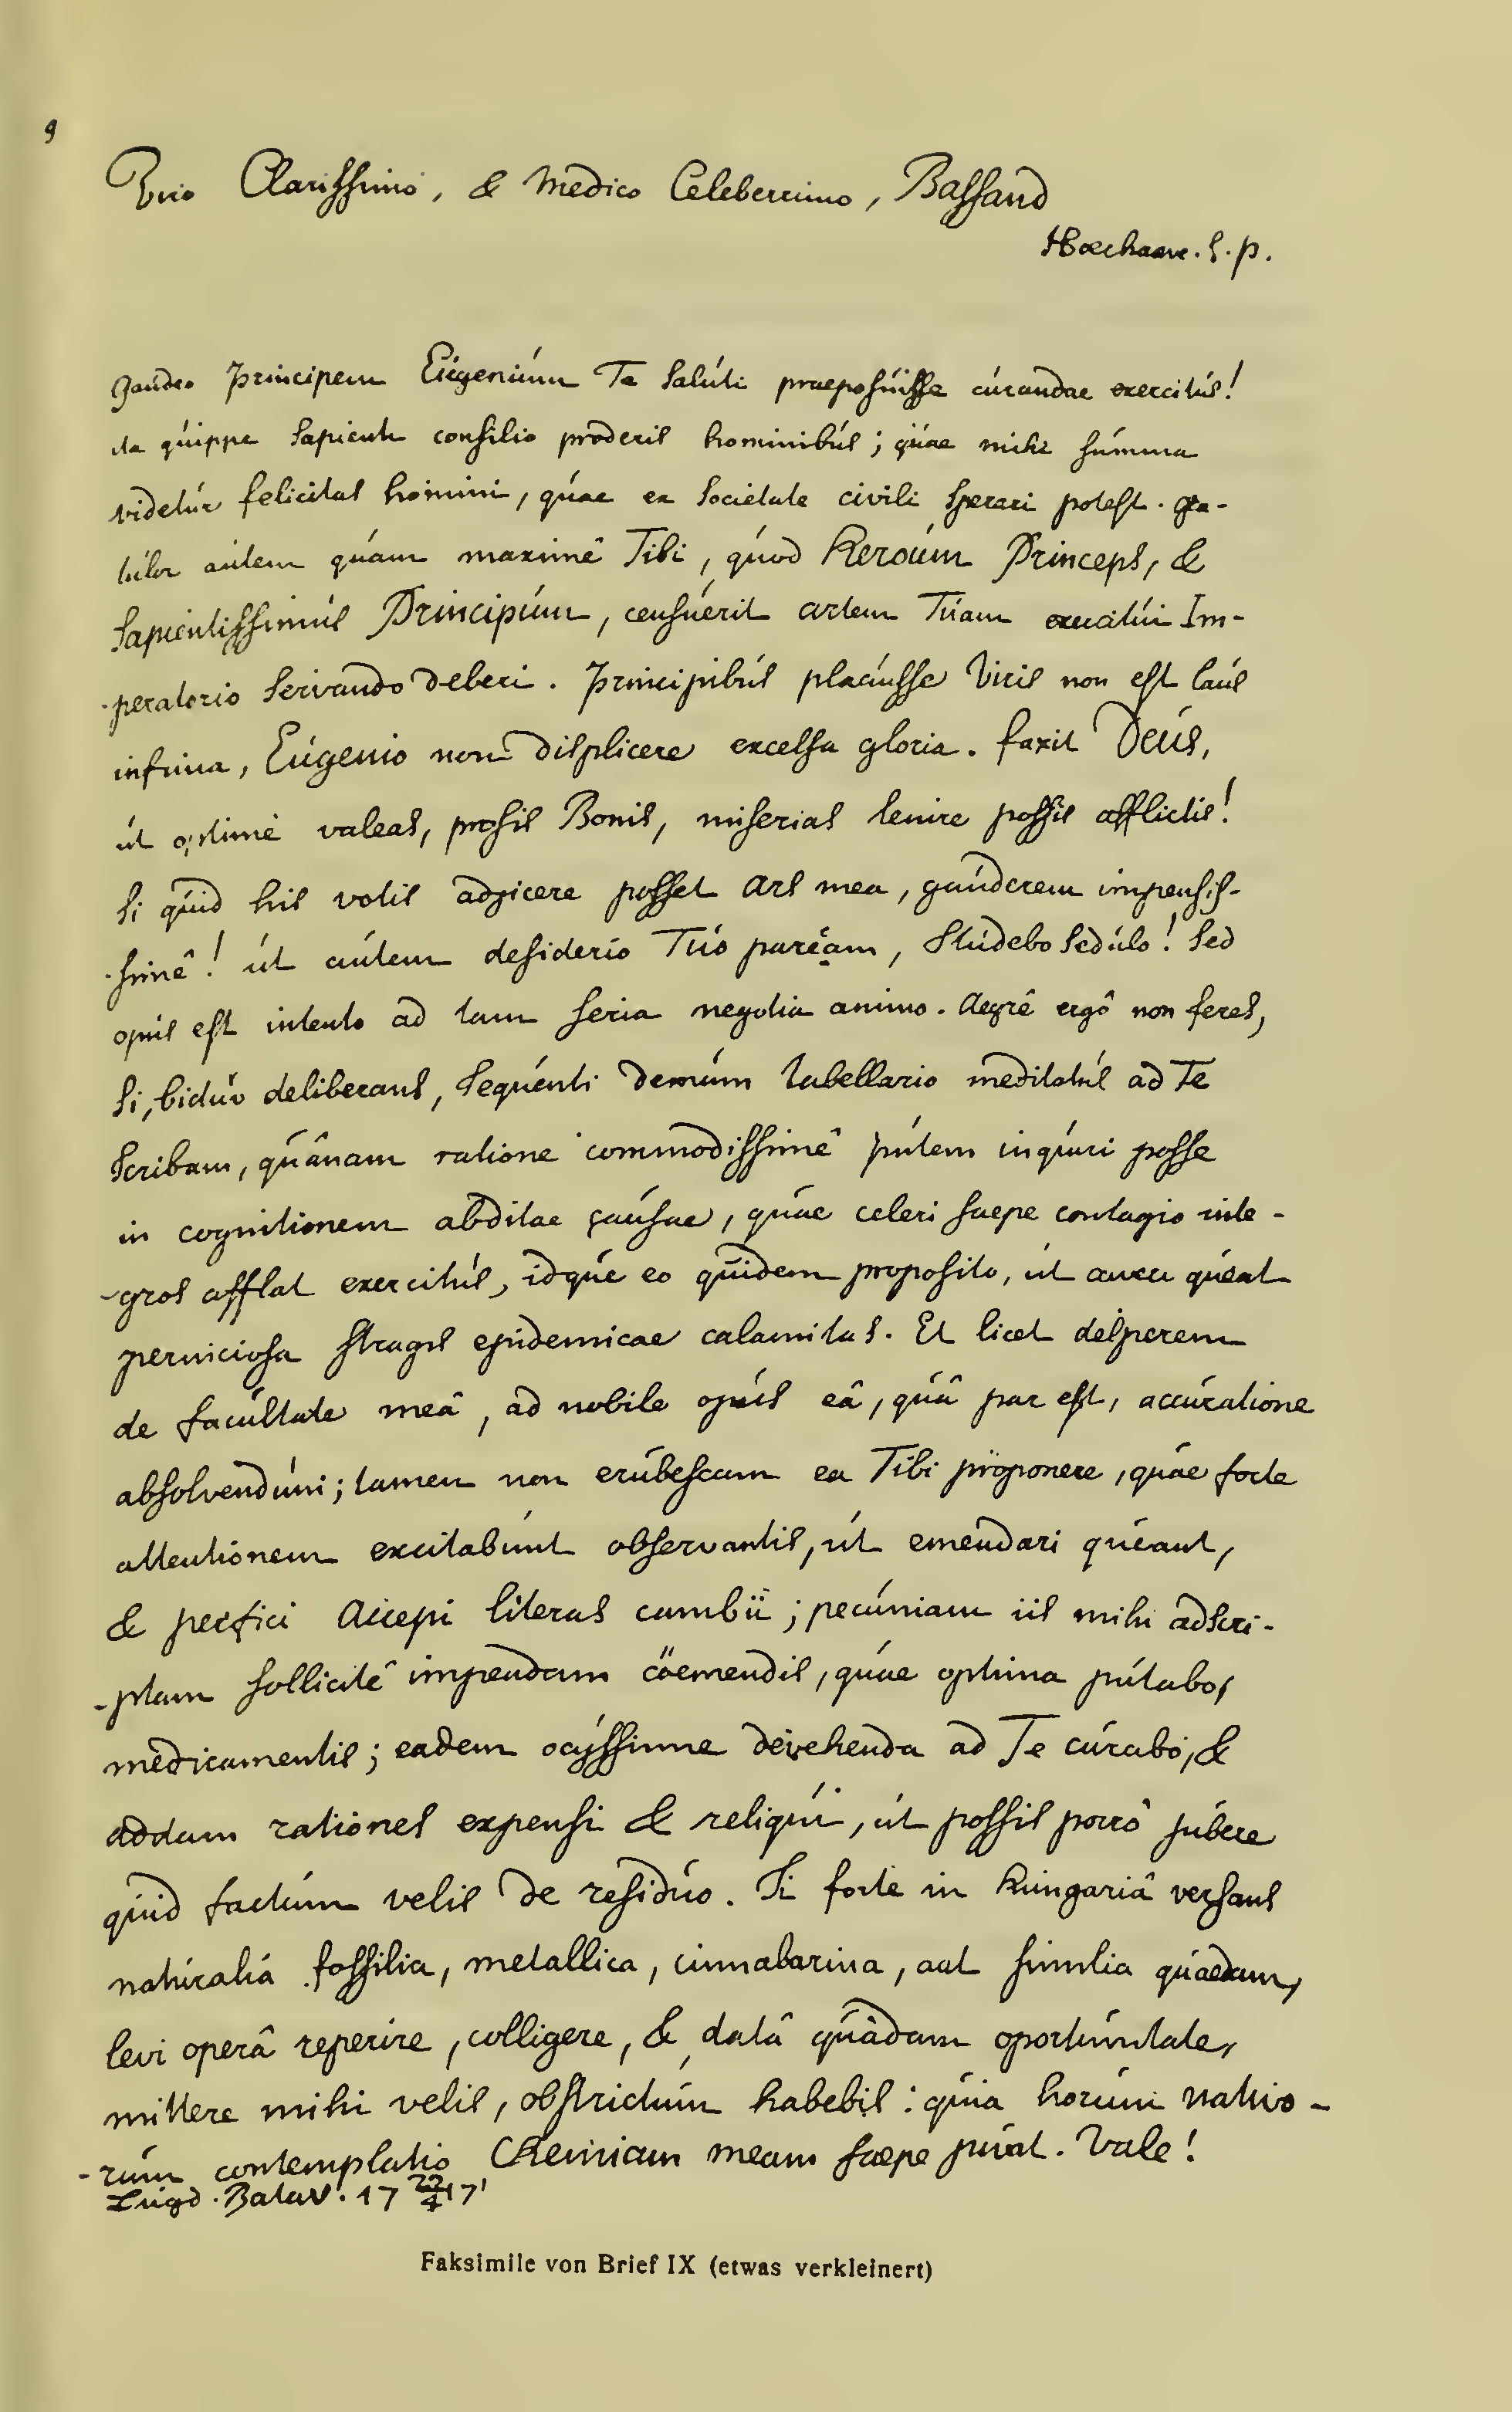 9
Viro Clarissimo, & Medico Celeberrimo, Bassand
Boerhaave. S. p.
gaudeo Principem Eugenium Te Saluti praeposuisse curandae exercitus!
ita quippe Sapienti consilio proderis hominibus; quae mihi summa
videtur felicitas homini, quae ex Societate civili Sperari potest. gra-
tulor autem quam maximê Tibi, quod Heroum Princeps, &
Sapientissimus Principum, censuerit artem Tuam exercitui Im-
-peratorio Servando deberi. Principibus placuisse Viris non est laus
infima, Eugenio non displicere excelsa gloria. faxit Deus,
ut optimè valeas, prosis Bonis, miserias lenire possis afflictis!
Si quid his votis adjicere posset Ars mea, gauderem impensis-
-simê! ut autem desiderio Tuo paream, Studebo Sedulo! Sed
opus est intento ad tam Seria negotia animo. Aegrê ergô non feres,
Si, biduo deliberans, Sequenti demum tabellario meditatus ad Te
Scribam, quânam ratione commodissimê putem inquiri posse
in cognitionem abditae causae, quae celeri saepe contagio inte-
-gros afflat exercitus, idque eo quidem proposito, ut arceri queat
perniciosa stragis epidemicae calamitas. Et licet desperem
de facultate meâ, ad nobile opus eâ, quâ par est, accuratione
absolvendum; tamen non erubescam ea Tibi proponere, quae forte
attentionem excitabunt observantis, ut emendari queant,
& perfici Accepi literas cambii; pecuniam iis mihi adscri-
-ptam sollicitê impendam cöemendis, quae optima putabo,
medicamentis; eadem ocyssime devehenda ad Te curabo, &
addam rationes expensi & reliqui, ut possis porrô jubere
quid factum velis de residuo. Si forte in Hungariâ versans
naturalia fossilia, metallica, cinnabarina, aut similia quaedam,
levi operâ reperire, colligere, & datâ quâdam oportunitate,
mittere mihi velis, obstrictum habebis: quia horum nativo-
-rum contemplatio Chemiam meam saepe juvat. Vale!
Lugd. Batav. 17 22/4 17
Faksimile von Brief IX (etwas verkleinert)